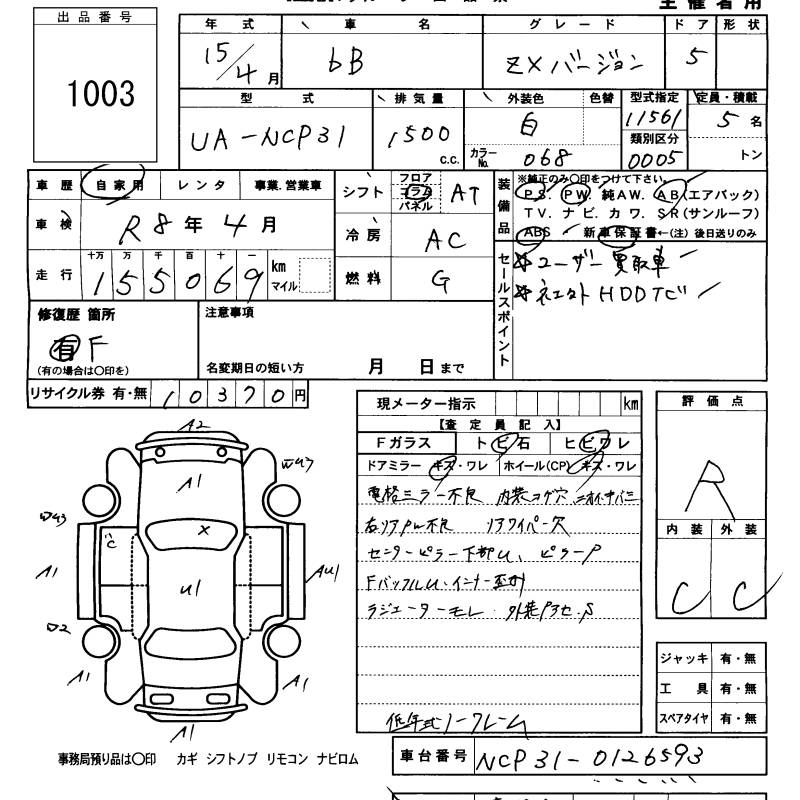 主催者用
出品番号
1003
年式 車名 グレード ドア 形状
15/4月 bB ZXバージョン 5
型式 排気量 外装色 色替 型式指定 定員・積載
UA-NCP31 1500 c.c. 白 11561 5名
カラーNo. 068 類別区分 0005 トン
車歴 自家用 レンタ 事業.営業車
車検 R8年4月
走行 十万 万 千 百 十 一
155069 km マイル
シフト フロア コラム パネル AT
冷房 AC
燃料 G
装備品 ※純正のみ〇印をつけて下さい。
PS. PW. 純AW. AB(エアバック)
TV. ナビ. カワ. SR(サンルーフ)
ABS 新車保証書←(注)後日送りのみ
セールスポイント
☆ユーザー買取車
☆ HDDナビ
修復歴 箇所
有 F
(有の場合は〇印を)
注意事項
名変期日の短い方 月 日まで
リサイクル券 有・無 10370円
現メーター指示 km
【査定員記入】
Fガラス トビ石 ヒビワレ
ドアミラー キズ・ワレ ホイール(CP) キズ・ワレ
電格ミラー不良 内装コゲ穴
右リアPW不良 リアワイパー欠
センターピラー下部U、ピラーP
FバッフルU・インナー歪
ラジエーターモレ
低年式ノークレーム
評価点
R
内装 外装
C C
ジャッキ 有・無
工具 有・無
スペアタイヤ 有・無
A2
W43
A1
W43
×
A1
U1
AU1
A1
A1
A1
事務局預り品は〇印 カギ シフトノブ リモコン ナビロム
車台番号 NCP31-0126593